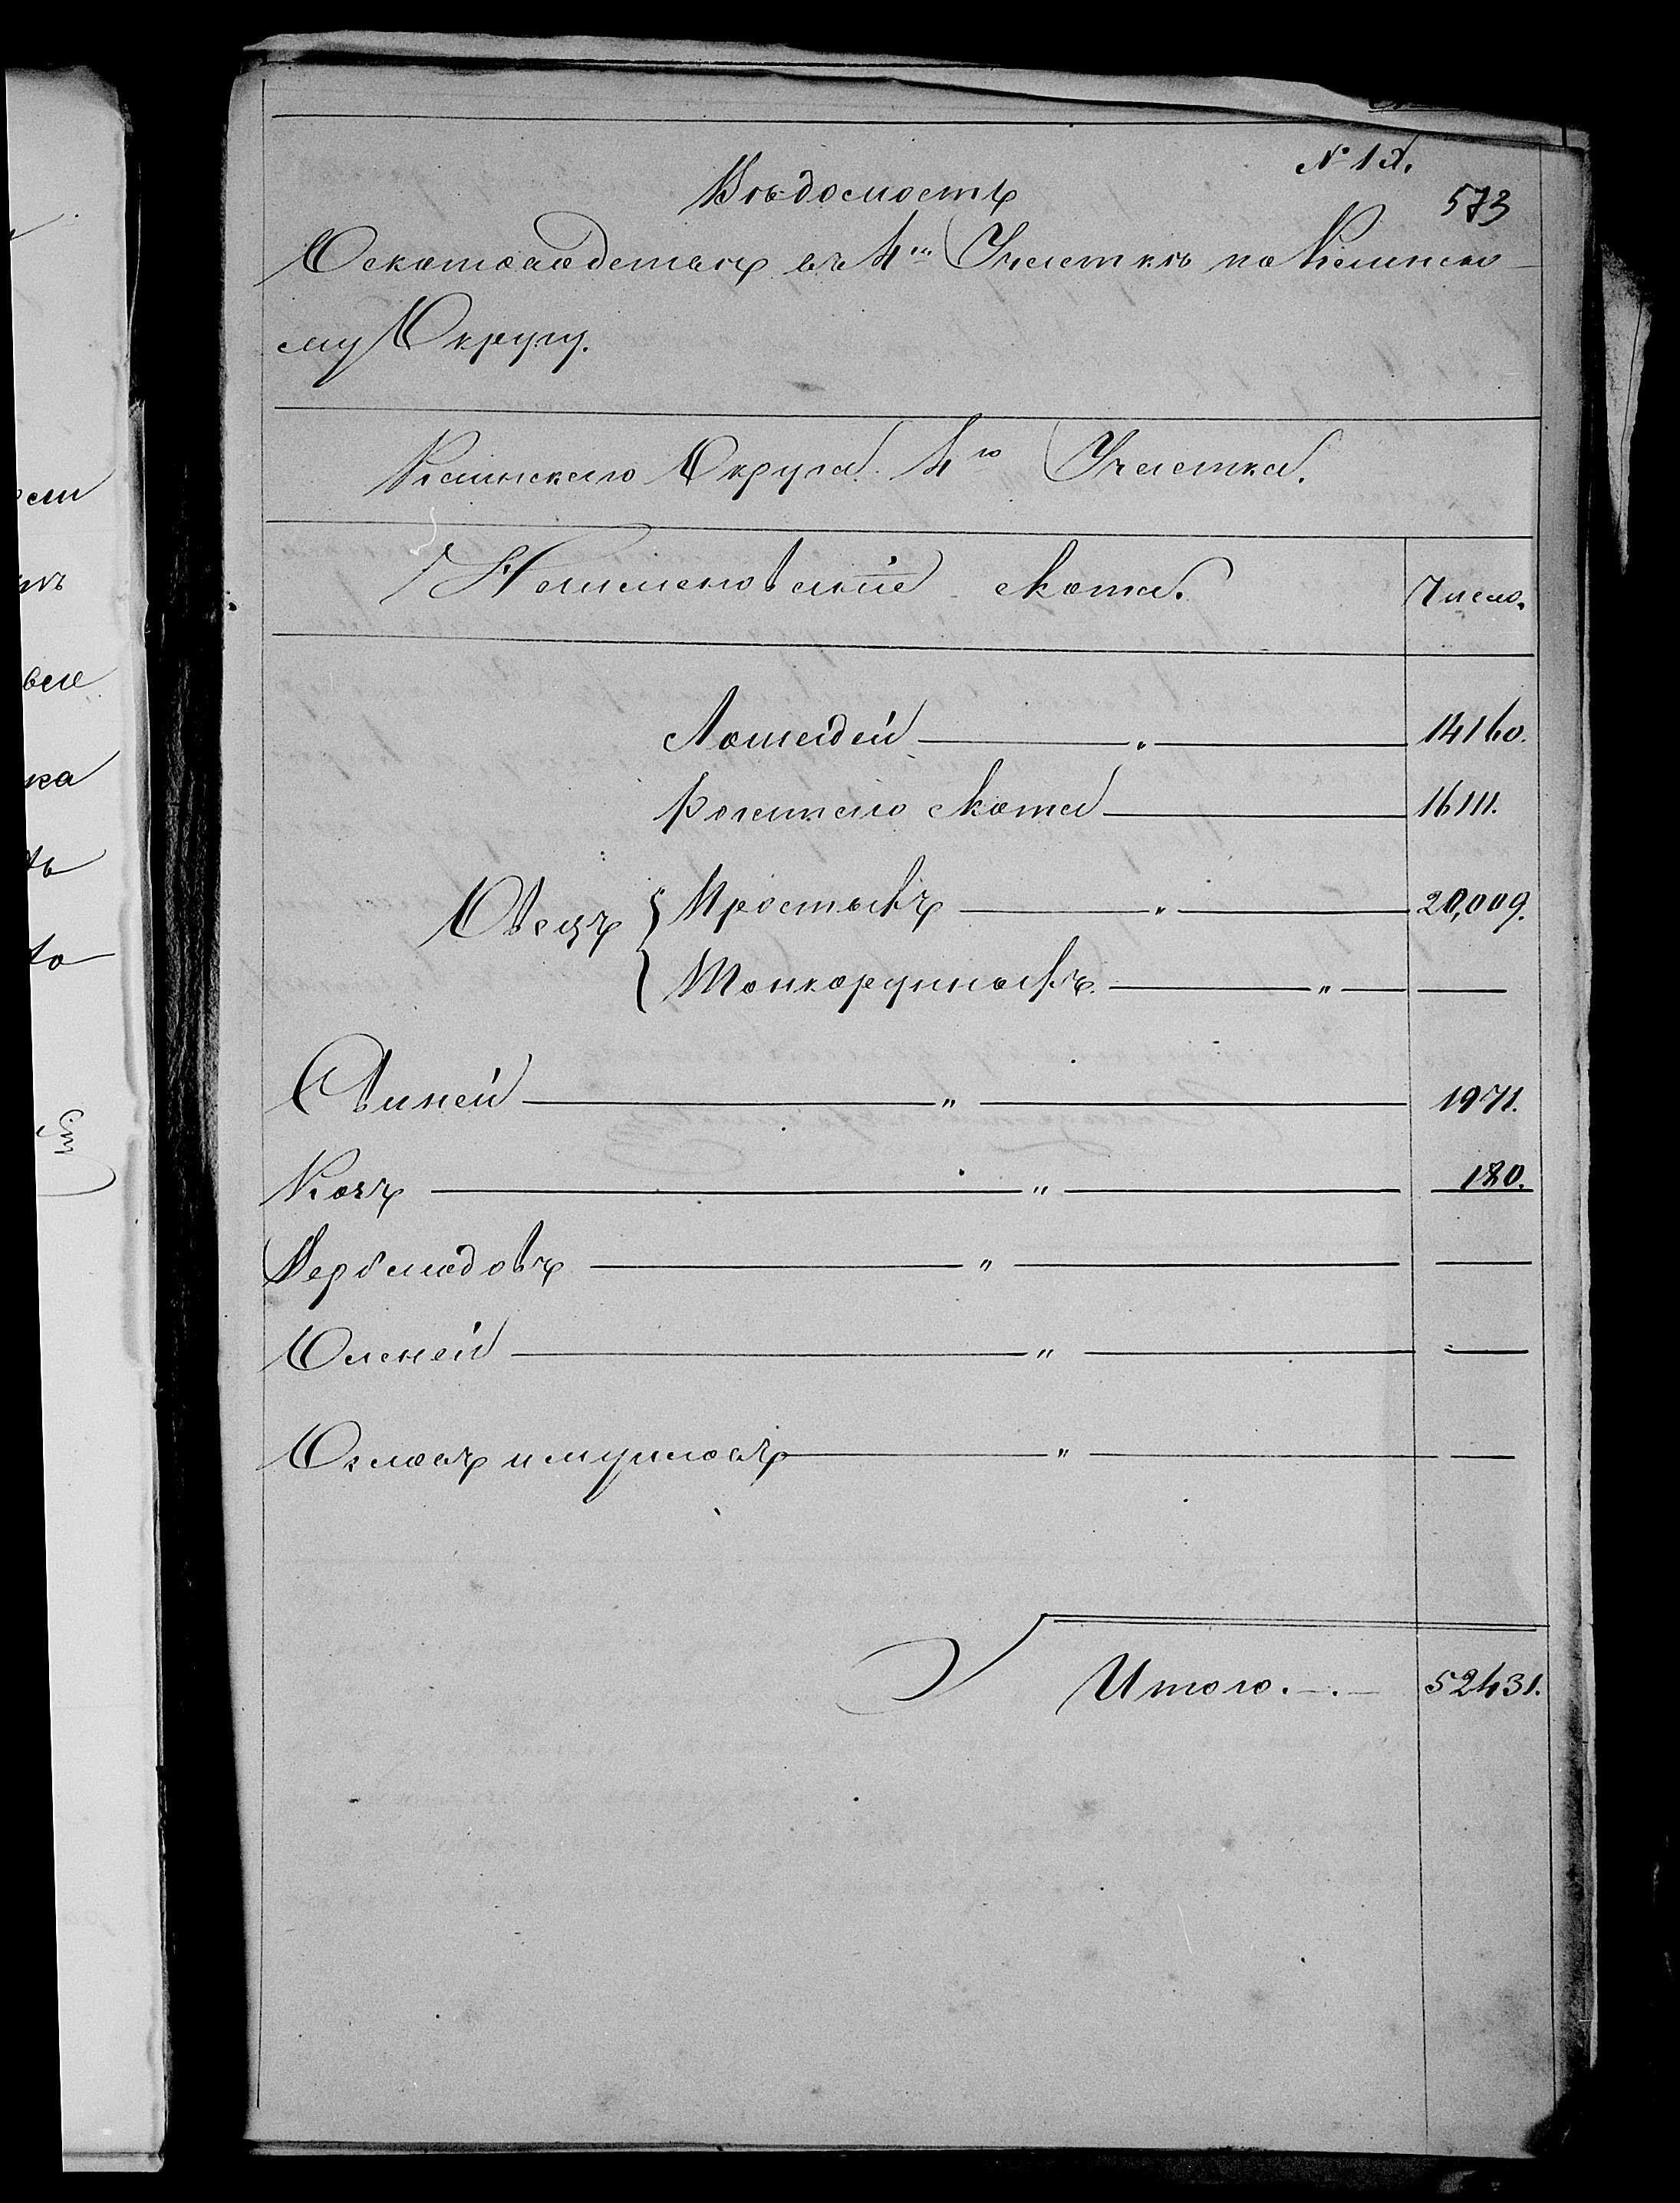 № 12.
573
Вѣдомость
О скотоводствѣ въ 4мъ Участкѣ по Каинско-
му Округу.
Каинскаго Округа 4го Участка.
Наименованіе скота.
Число.
Лошадей — " — 14160.
Рогатаго скота — 16111.
Овецъ { Простыхъ — " — 20,009.
Тонкорунныхъ — " — —
Свиней — " — 1971.
Козъ — " — 180.
Верблюдовъ — " — —
Оленей — " — —
Ословъ и муловъ — " — —
Итого . — . — 52431.